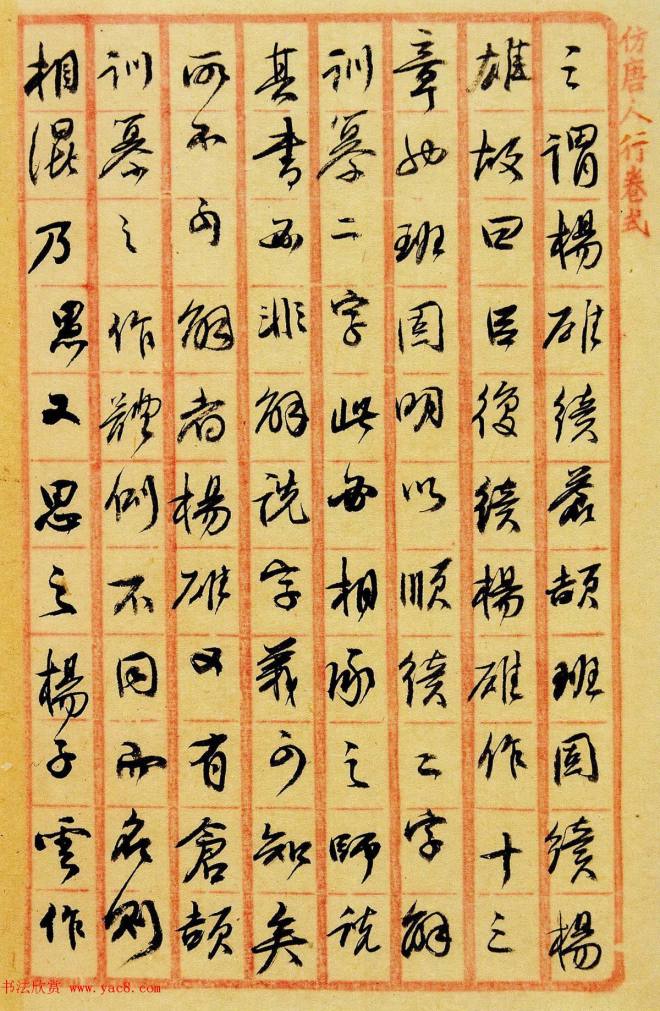 仿唐人行卷式
之謂楊雄續蒼頡班固續楊
雄故曰臣復續楊雄作十三
章也班固明以順續二字解
訓纂二字此必相承之師説
其書必非解説字義可知矣
所不可解者楊雄又有倉頡
訓纂之作體例不同而名則
相混乃思又思之楊子雲作
书法欣赏 www.yac8.com